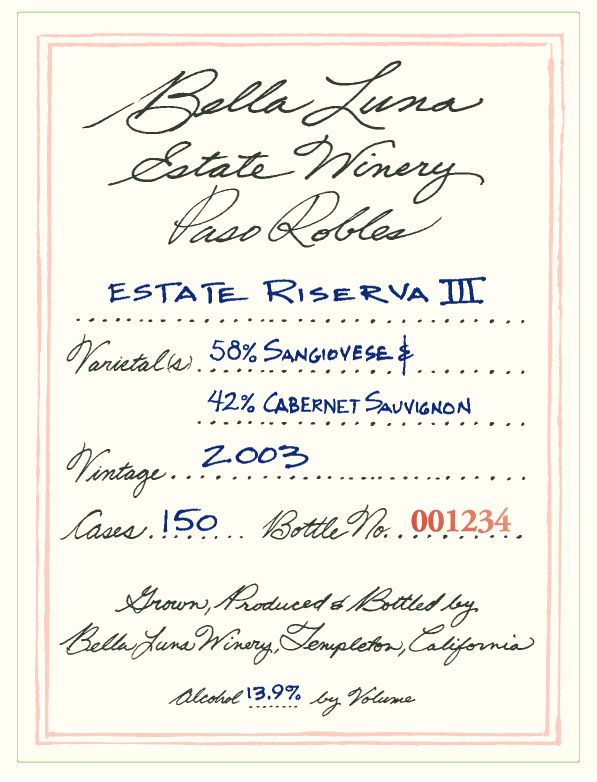 Bella Luna
Estate Winery
Paso Robles
ESTATE RISERVA III
Varietal(s) 58% SANGIOVESE &
42% CABERNET SAUVIGNON
Vintage 2003
Cases 150 Bottle No. 001234
Grown, Produced & Bottled by
Bella Luna Winery, Templeton, California
Alcohol 13.9% by Volume